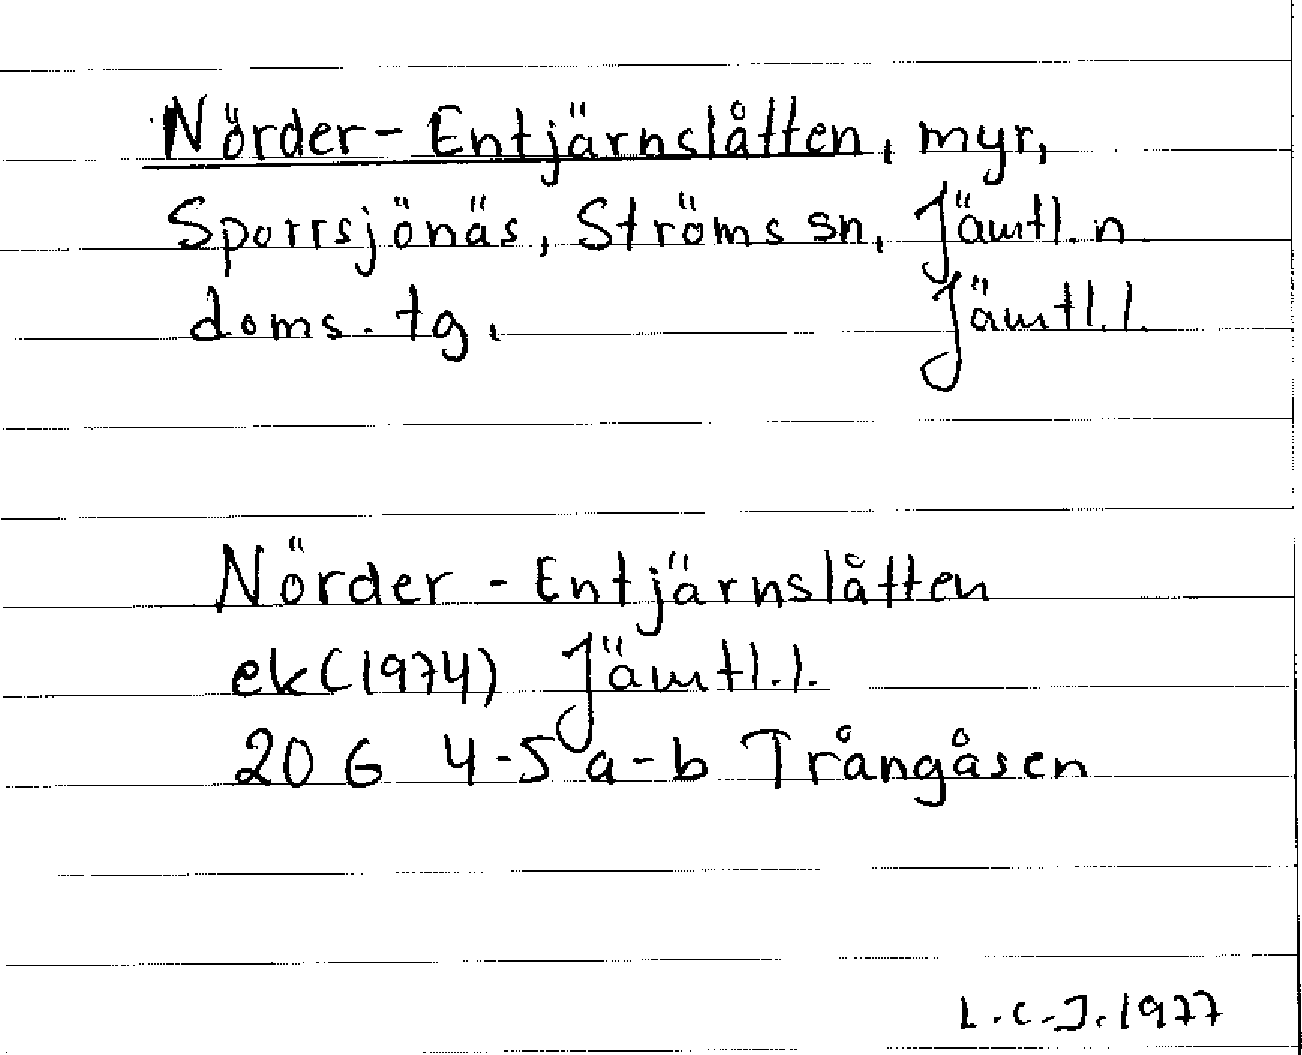 Nörder-Entjärnslåtten, myr,
Sporrsjönäs, Ströms sn, Jämtl. n
doms. tg. Jämtl. l.
Nörder-Entjärnslåtten
ek (1974) Jämtl. l.
20 G 4-5 a-b Trångåsen
L.C.J. 1977